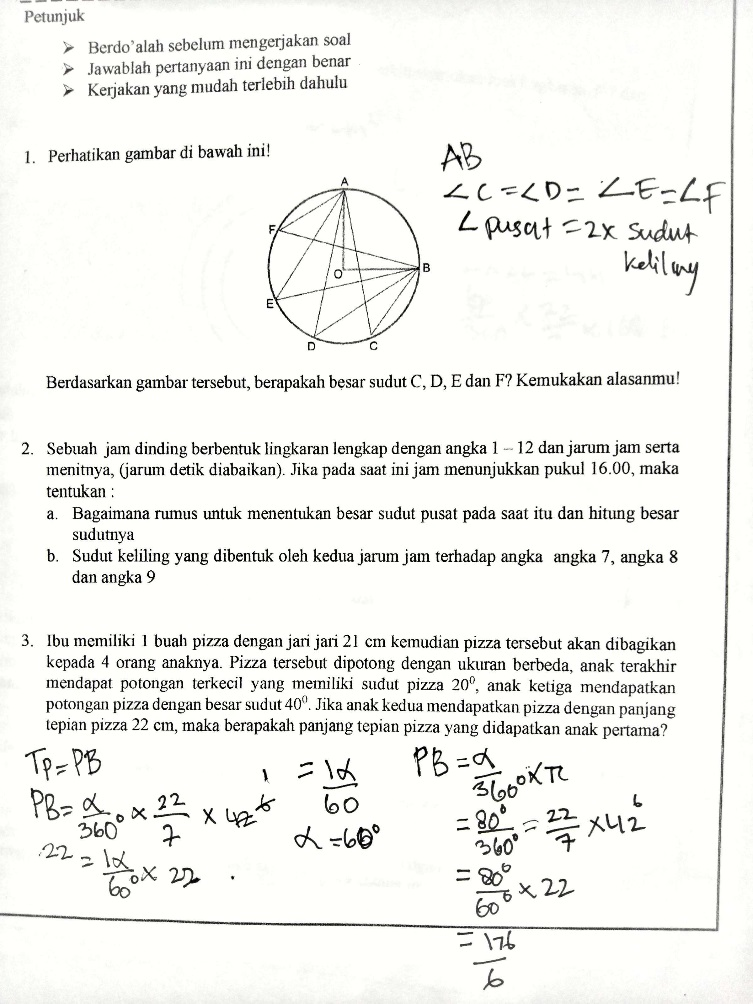 Petunjuk
➢ Berdo'alah sebelum mengerjakan soal
➢ Jawablah pertanyaan ini dengan benar
➢ Kerjakan yang mudah terlebih dahulu
1. Perhatikan gambar di bawah ini!
AB
∠C = ∠D = ∠E = ∠F
∠ pusat = 2x sudut
keliling
A
F
O
B
E
D
C
Berdasarkan gambar tersebut, berapakah besar sudut C, D, E dan F? Kemukakan alasanmu!
2. Sebuah jam dinding berbentuk lingkaran lengkap dengan angka 1 – 12 dan jarum jam serta
menitnya, (jarum detik diabaikan). Jika pada saat ini jam menunjukkan pukul 16.00, maka
tentukan :
a. Bagaimana rumus untuk menentukan besar sudut pusat pada saat itu dan hitung besar
sudutnya
b. Sudut keliling yang dibentuk oleh kedua jarum jam terhadap angka angka 7, angka 8
dan angka 9
3. Ibu memiliki 1 buah pizza dengan jari jari 21 cm kemudian pizza tersebut akan dibagikan
kepada 4 orang anaknya. Pizza tersebut dipotong dengan ukuran berbeda, anak terakhir
mendapat potongan terkecil yang memiliki sudut pizza 20⁰, anak ketiga mendapatkan
potongan pizza dengan besar sudut 40⁰. Jika anak kedua mendapatkan pizza dengan panjang
tepian pizza 22 cm, maka berapakah panjang tepian pizza yang didapatkan anak pertama?
Tp = PB
PB = α/360° × 22/7 × 42 6
22 = 1α/60° × 22
1 = 1α/60
α = 60°
PB = α/360° × π
= 80°/360° = 22/7 × 42 6
= 80°/60° × 22
= 176/6